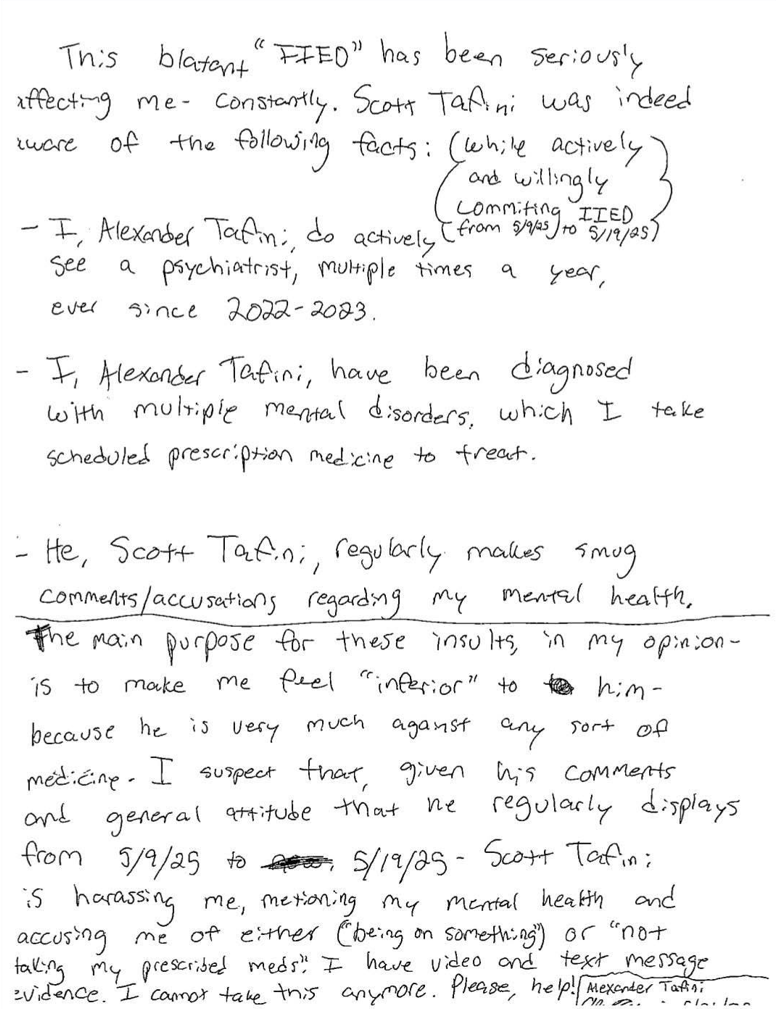 This blatant "IIED" has been seriously
affecting me - constantly. Scott Tafini was indeed
aware of the following facts: (while actively
and willingly
commiting IIED
(from 5/9/25 to 5/19/25)
- I, Alexander Tafini, do actively
see a psychiatrist, multiple times a year,
ever since 2022-2023.
- I, Alexander Tafini, have been diagnosed
with multiple mental disorders, which I take
scheduled prescription medicine to treat.
- He, Scott Tafini, regularly makes smug
comments/accusations regarding my mental health.
The main purpose for these insults, in my opinion-
is to make me feel "inferior" to him-
because he is very much against any sort of
medicine. I suspect that, given his comments
and general attitude that he regularly displays
from 5/9/25 to 5/19/25 - Scott Tafini
is harassing me, metioning my mental health and
accusing me of either ("being on something") or "not
taking my prescribed meds". I have video and text message
evidence. I cannot take this anymore. Please, help! Alexander Tafini